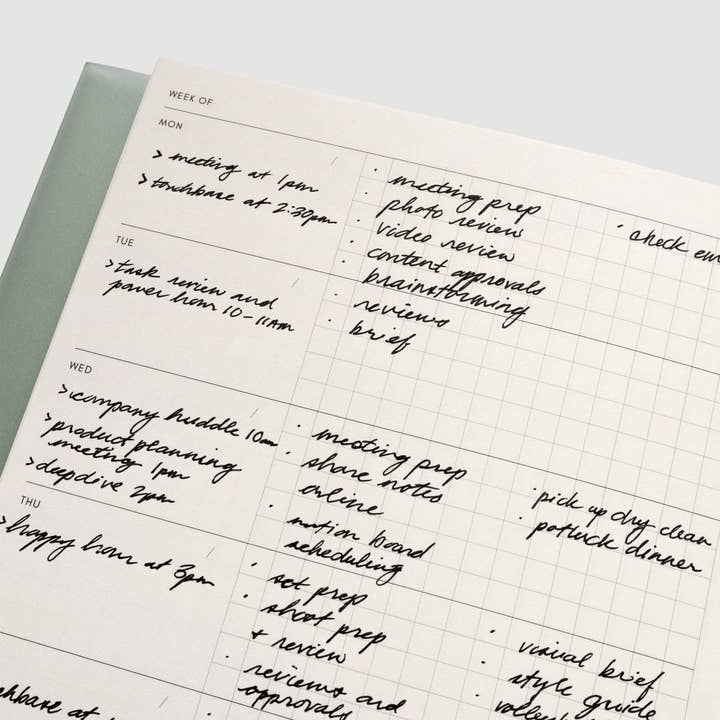 WEEK OF
MON
> meeting at 1pm
> touchbase at 2:30pm
· meeting prep
· photo review
· video review
· content approvals
· brainstorming
· check
TUE
> task review and
power hour 10-11AM
· reviews
· brief
WED
> company huddle 10am
> product planning
meeting 1pm
> deepdive 2pm
· meeting prep
· share notes
online
· notion board
scheduling
· pick up dry clean
· potluck dinner
THU
> happy hour at 3pm
· set prep
· shoot prep
+ review
· reviews and
approvals
· visual brief
· style guide
at